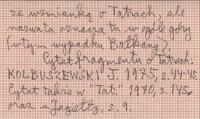 ze wzmianką o Tatrach, ale
nazwała oznacza tu w ogóle góry
(w tym wypadku Bałkany).
Cytat fragmentu o Tatrach:
KOLBUSZEWSKI J. 1975, s. 44-45.
Cytat także w "Tat." 1970, s. 145
oraz w Jagiełły, s. 9.